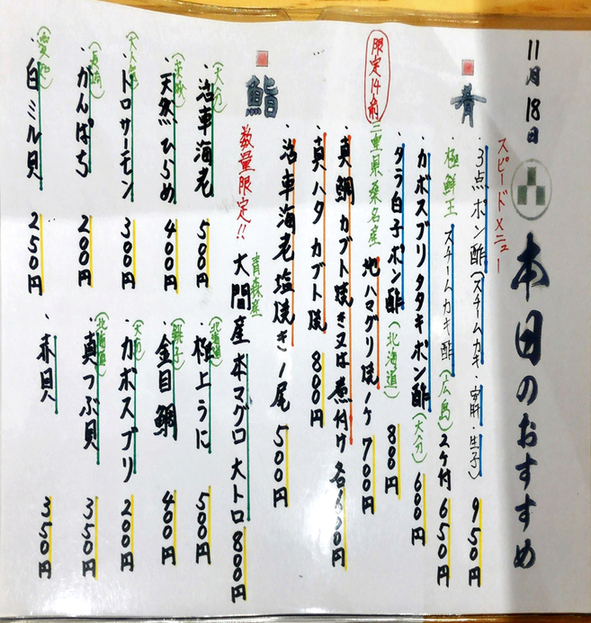 11月18日 本日のおすすめ
肴
スピードメニュー
・3点ポン酢(スチームカキ・安肝・生子) 950円
極鮮王 スチームカキ酢(広島)2ケ付 650円
・カボスブリタタキポン酢(大分) 600円
・タラ白子ポン酢(北海道) 800円
限定14前
三重県桑名産 地ハマグリ焼 1ケ 700円
・真鯛カブト焼き又は煮付け 各600円
・真ハタカブト焼 800円
・活車海老塩焼き 1尾 500円
鮨
数量限定!! 青森産 大間産本マグロ大トロ 800円
(大分)
・活車海老 500円
・天然ひらめ 400円
・トロサーモン 300円
(長崎)
・かんぱち 200円
(愛知)
・白ミル貝 250円
(北海道)
・極上うに 500円
(銚子)
・金目鯛 400円
(大分)
・カボスブリ 200円
(北海道)
・真つぶ貝 350円
・赤貝 350円